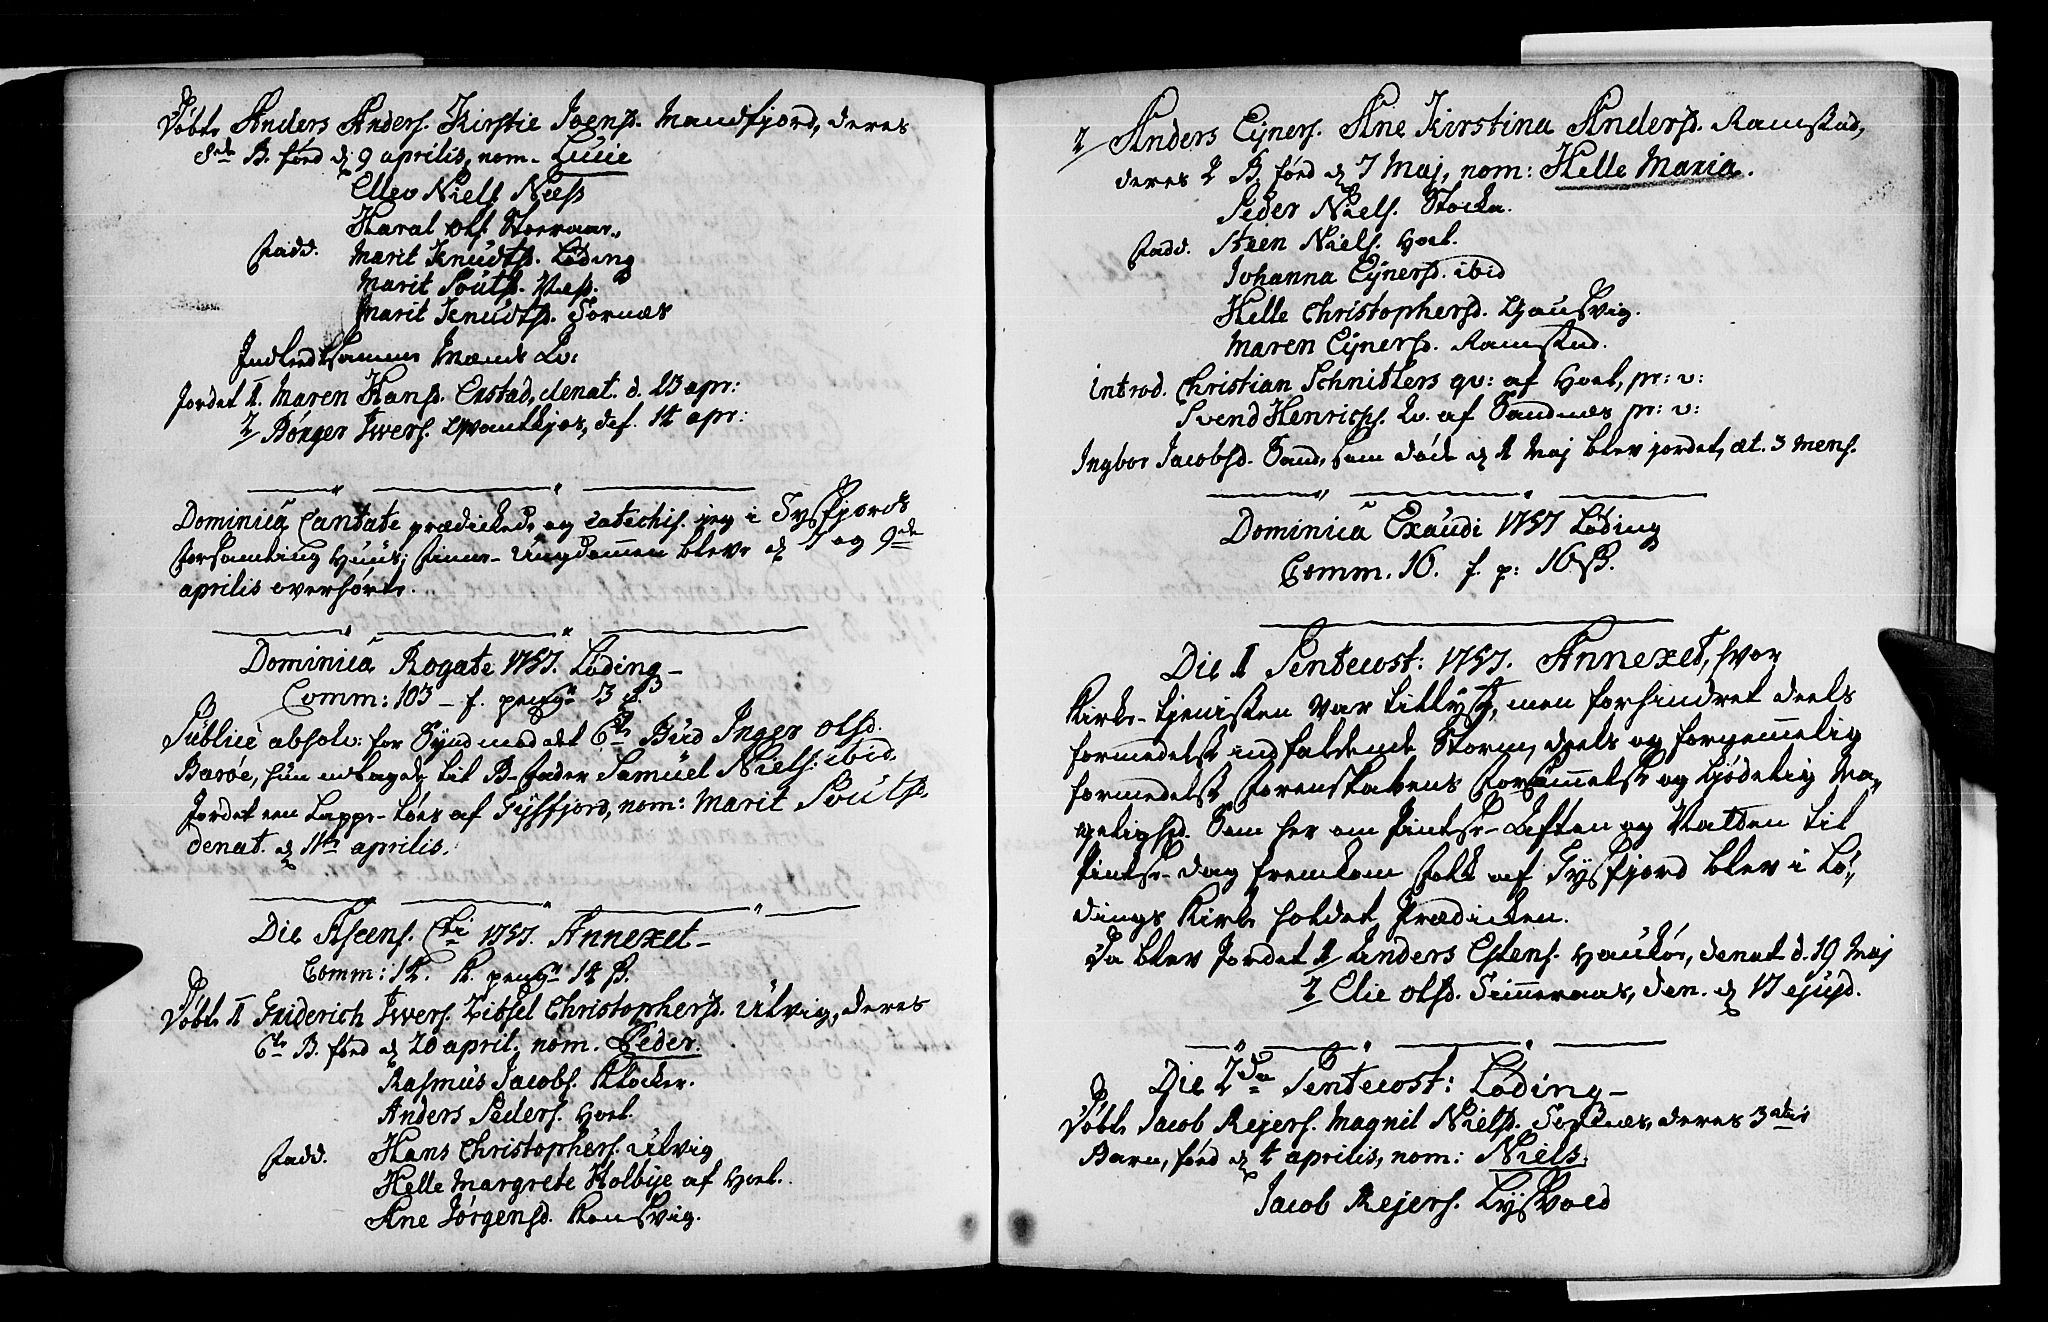 Døbt Anders Anders. Kirstie Joensd. Mandfjord, deres
8de B. fød d 9 aprilis, nom. Lucie
Ellev Niels. Næss
Haral Ols. Storraar
Fadd. Marit Knudtsd. Løding
Marit Poulsd. Næss.
Marit Knudtsd. Fornæs
Indledt samme Mands Qv:
Jordet 1. Maren Hansd. Erstad, denat. d. 23 apr:
2 Børger Iwers. def. 14 apr:
Dominica Cantate prædickede og catechis. jeg i Tysfjords
Forsamling Huus; Finne-Ungdommen blev d 7 og 9de
aprilis overhørte.
Dominica Rogate 1757. Løding
Comm: 103 - f. peng
Publicè absolv: for Synd mod det 6te Bud Inger Olsd.
Barøe, hun udlagde til B-Fader Samuel Niels: ibid.
Jordet een Lappe-Tøes af Tysfjord, nom: Marit Poulsd.
denat. d 11te aprilis.
Die Ascens. Cti 1757. Annexet
Comm: 14. K. peng 14 s.
Døbt 1 Friderich Iwers. Zidsel Christophersd. Ulvig, deres
6te B. fød d 20 april. nom. Peder.
Rasmus Jacobs. Klocker.
Anders Peders. Hoel.
Fadd. Hans Christophers. Ulvig
Helle Margrete Kolbye af Hoel.
Ane Jørgensd. Konsvig.
2 Anders Ejners. Ane Kirstina Andersd. Ramstad,
deres 2 B. fød d 7 Maj, nom: Helle Maria.
Peder Niels. Stocka.
Fadd. Steen Niels. Hoel.
Johanna Ejnersd. ibid
Helle Christophersd. Djausvig.
Maren Ejnersd. Ramstad.
Introd. Christian Schnitlers qv: af Hoel, pr: v:
Svend Henrichs. Qv. af Sandnæs pr: v:
Ingbor Jacobsd. Sand, som døde d 1 Maj blev jordet, æt. 3 mens.
Dominica Exaudi 1757 Løding
Comm. 16. f. p: 16 s.
Die 1 Pentecost: 1757. Annexet, hvor
Kirke-tjenisten var tillyst, men forhindret deels
formedelst indfaldende Storm, deels og fornemmelig
formedelst Forenskabens Forsømmelse og
. Som her om Pintse-Aften og Natten til
Pintse-dag fremkom Folk af Tysfjord blev i Lø-
dings Kirke holdet Prædicken.
Da blev Jordet 1 Anders Estens. Haukøe, denat d. 19 Maj
2 Elie Olsd. Simmeraas, den. d 17 ejusd.
Die 2da Pentecost: Løding
Døbt Jacob Rejers. Magnil Nielsd. Fornæs, deres 3die
Barn, fød d 4 aprilis, nom: Niels.
Jacob Rejers. Lysvold